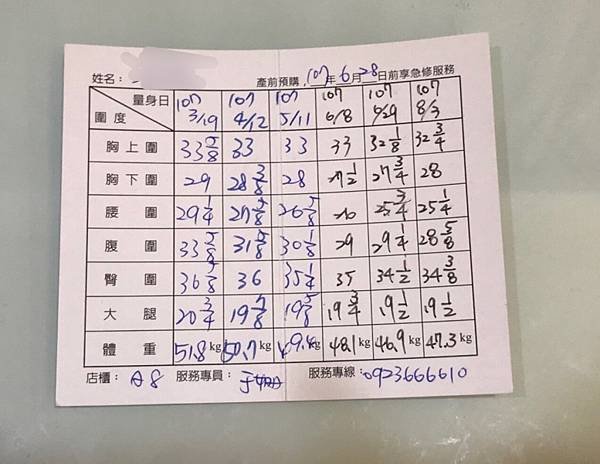 姓名：
產前預購，107年6月28日前享急修服務
量身日 107 3/19 107 4/12 107 5/11 107 6/8 107 6/29 107 8/3
圍度
胸上圍 33 5/8 33 33 33 32 1/8 32 3/4
胸下圍 29 28 3/8 28 27 1/2 27 3/4 28
腰圍 29 1/4 27 5/8 26 5/8 26 25 3/4 25 1/4
腹圍 33 5/8 31 5/8 30 1/8 29 29 1/4 28 5/8
臀圍 36 5/8 36 35 1/4 35 34 1/2 34 3/8
大腿 20 3/4 19 7/8 19 5/8 19 3/4 19 1/2 19 1/2
體重 51.8kg 50.7kg 49.4kg 48.1kg 46.9kg 47.3kg
店櫃：A8 服務專員： 服務專線：0923666610